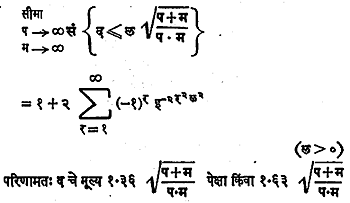 सीमा
प → ∞ सं { द ≤ छ √(प+म / प·म) }
म → ∞
∞
= १ + २ ∑ (–१)^र इ^–२र^२छ^२
र = १
(छ > ०)
परिणामतः द चे मूल्य १·३६ √(प+म / प·म) पेक्षा किंवा १·६३ √(प+म / प·म)